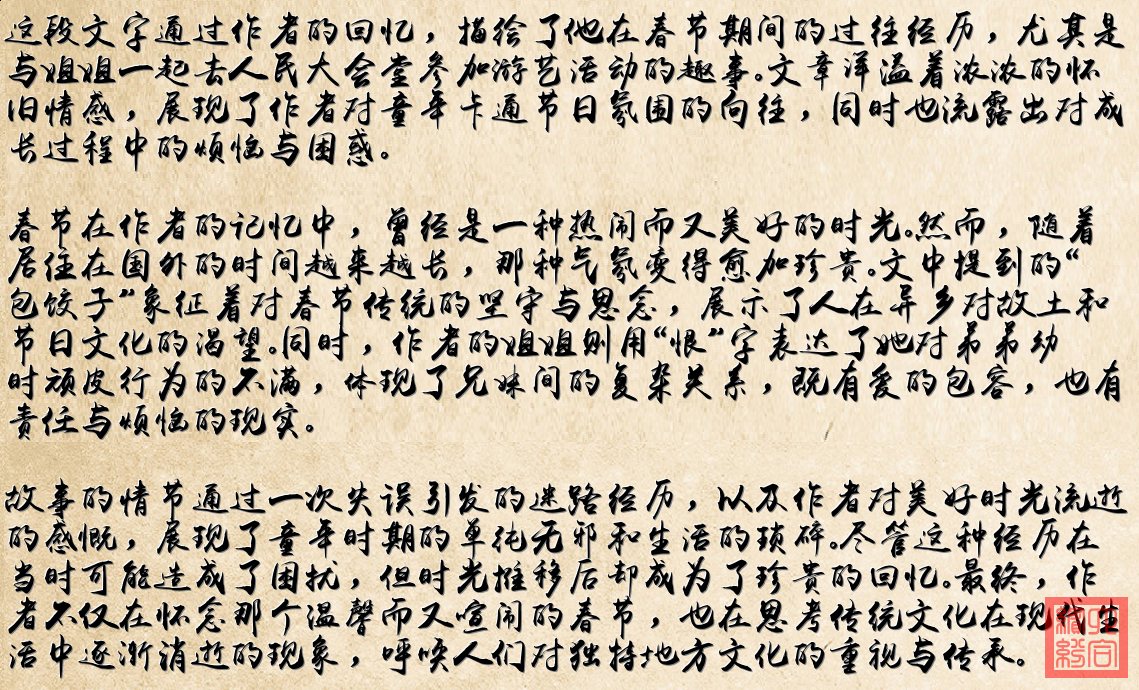 这段文字通过作者的回忆，描绘了他在春节期间的过往经历，尤其是
与姐姐一起去人民大会堂参加游艺活动的趣事。文章洋溢着浓浓的怀
旧情感，展现了作者对童年卡通节日氛围的向往，同时也流露出对成
长过程中的烦恼与困惑。
春节在作者的记忆中，曾经是一种热闹而又美好的时光。然而，随着
居住在国外的时间越来越长，那种气氛变得愈加珍贵。文中提到的“
包饺子”象征着对春节传统的坚守与思念，展示了人在异乡对故土和
节日文化的渴望。同时，作者的姐姐则用“恨”字表达了她对弟弟幼
时顽皮行为的不满，体现了兄妹间的复杂关系，既有爱的包容，也有
责任与烦恼的现实。
故事的情节通过一次失误引发的迷路经历，以及作者对美好时光流逝
的感慨，展现了童年时期的单纯无邪和生活的琐碎。尽管这种经历在
当时可能造成了困扰，但时光推移后却成为了珍贵的回忆。最终，作
者不仅在怀念那个温馨而又喧闹的春节，也在思考传统文化在现代生
活中逐渐消逝的现象，呼唤人们对独特地方文化的重视与传承。